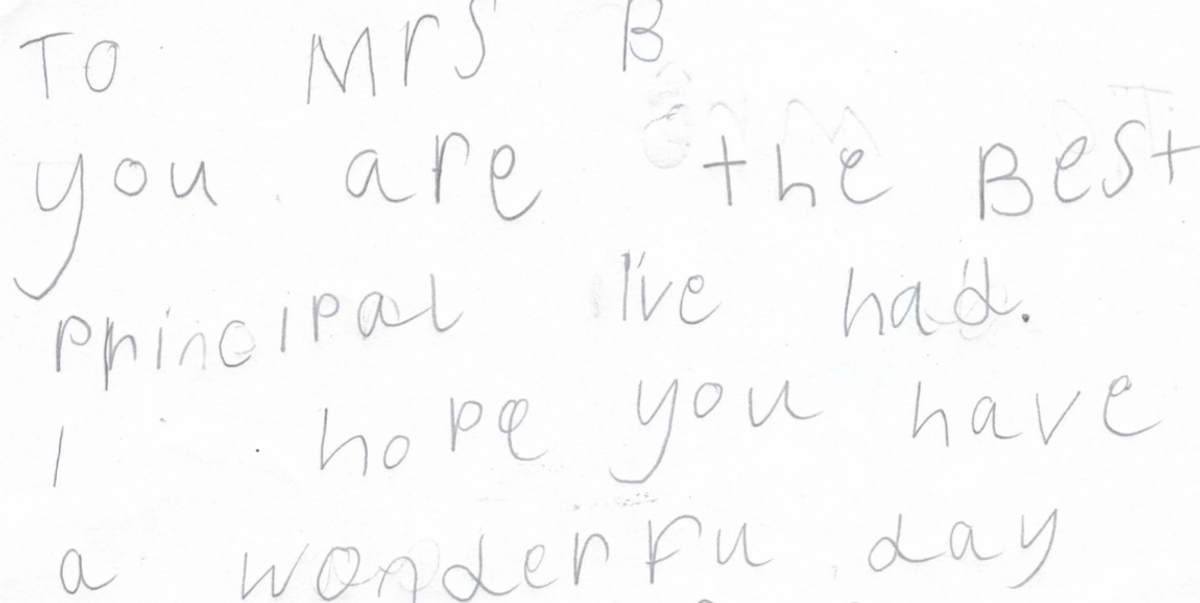 To Mrs B
you are the Best
pprincipal I've had.
I hope you have
a wonderfu day